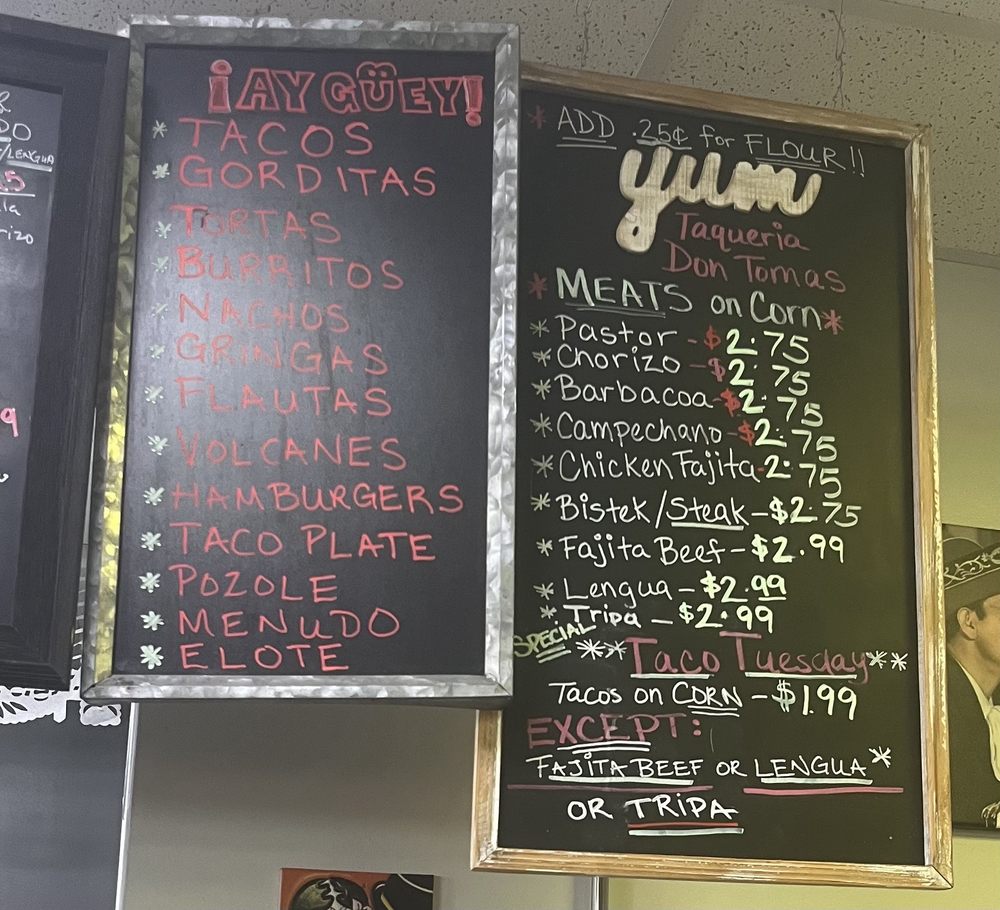 DO
/LENGUA
¡AY GÜEY!
* TACOS
* GORDITAS
* TORTAS
* BURRITOS
* NACHOS
* GRINGAS
* FLAUTAS
* VOLCANES
* HAMBURGERS
* TACO PLATE
* POZOLE
* MENUDO
* ELOTE
* ADD .25¢ for FLOUR!!
yum
Taqueria
Don Tomas
* MEATS on Corn *
* Pastor - $2.75
* Chorizo - $2.75
* Barbacoa - $2.75
* Campechano - $2.75
* Chicken Fajita - 2.75
* Bistek/Steak - $2.75
* Fajita Beef - $2.99
* Lengua - $2.99
* Tripa - $2.99
SPECIAL
** Taco Tuesday **
Tacos on CORN - $1.99
EXCEPT:
FAJITA BEEF OR LENGUA *
OR TRIPA